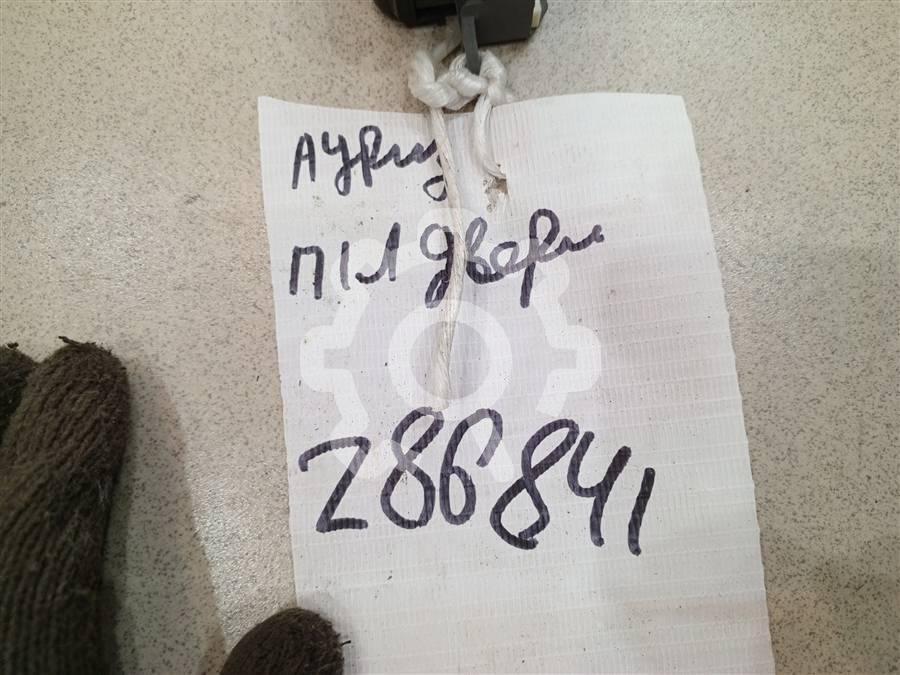 Аурис
П1Л двери
286841